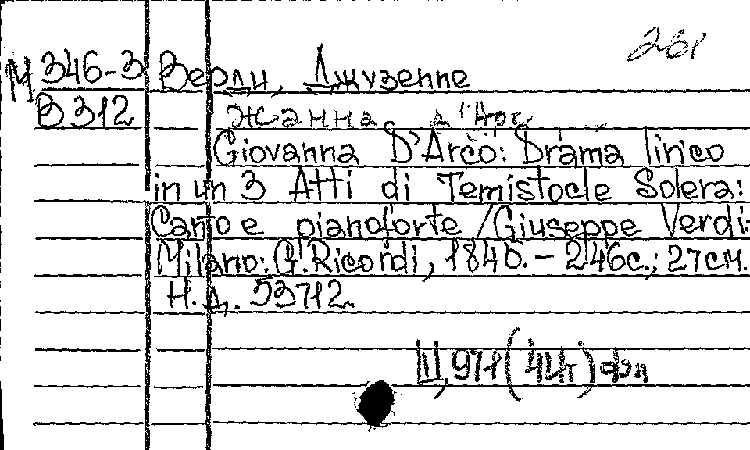 261
М 346-3 Верди, Джузеппе
В 312 Жанна д'Арк
Giovanna D'Arco: Drama lirico
in un 3 Atti di Temistocle Solera:
Canto e pianoforte / Giuseppe Verdi
Milano: G. Ricordi, 1846. - 246с.; 27см.
Н.д. 53712.
III, 971 (44т)